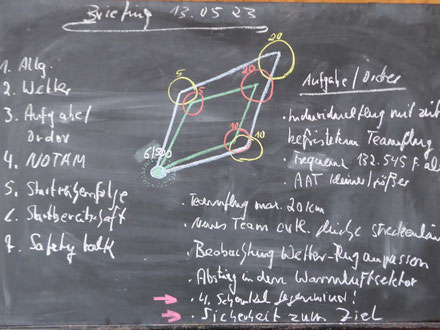 Briefing 13.05.23
1. Allg.
2. Wetter
3. Aufgabe/
Order
4. NOTAM
5. Startreihenfolge
6. Startbereitschaft
7. Safety talk
20
5
5
20
10
10
Aufgabe/Order
· Individualflug mit zeit
befristetem Teamflug
· Frequenz 132.545
AAT kleiner/größer
· Teamflug max. 20 km
· Neues Team evtl. gleiche
· Beobachtung Wetter - Flug anpassen
· Abstieg in dem Warmluftsektor
· Sicherheit zum Ziel